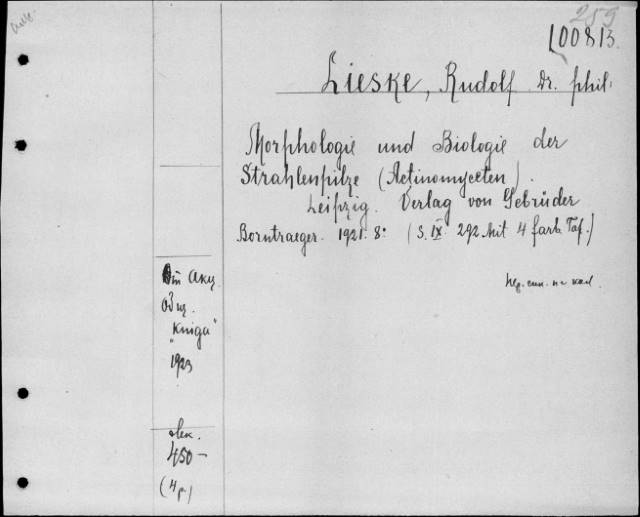 253
100813.
Lieske, Rudolf Dr. phil.
Morphologie und Biologie der
Strahlenpilze (Actinomyceten).
Leipzig. Verlag von Gebrüder
Borntraeger. 1921. 8° (S. IX. 292 Mit 4 farb. Taf.)
Акц.
Общ.
"Kniga"
1923
450 —
(4 р)